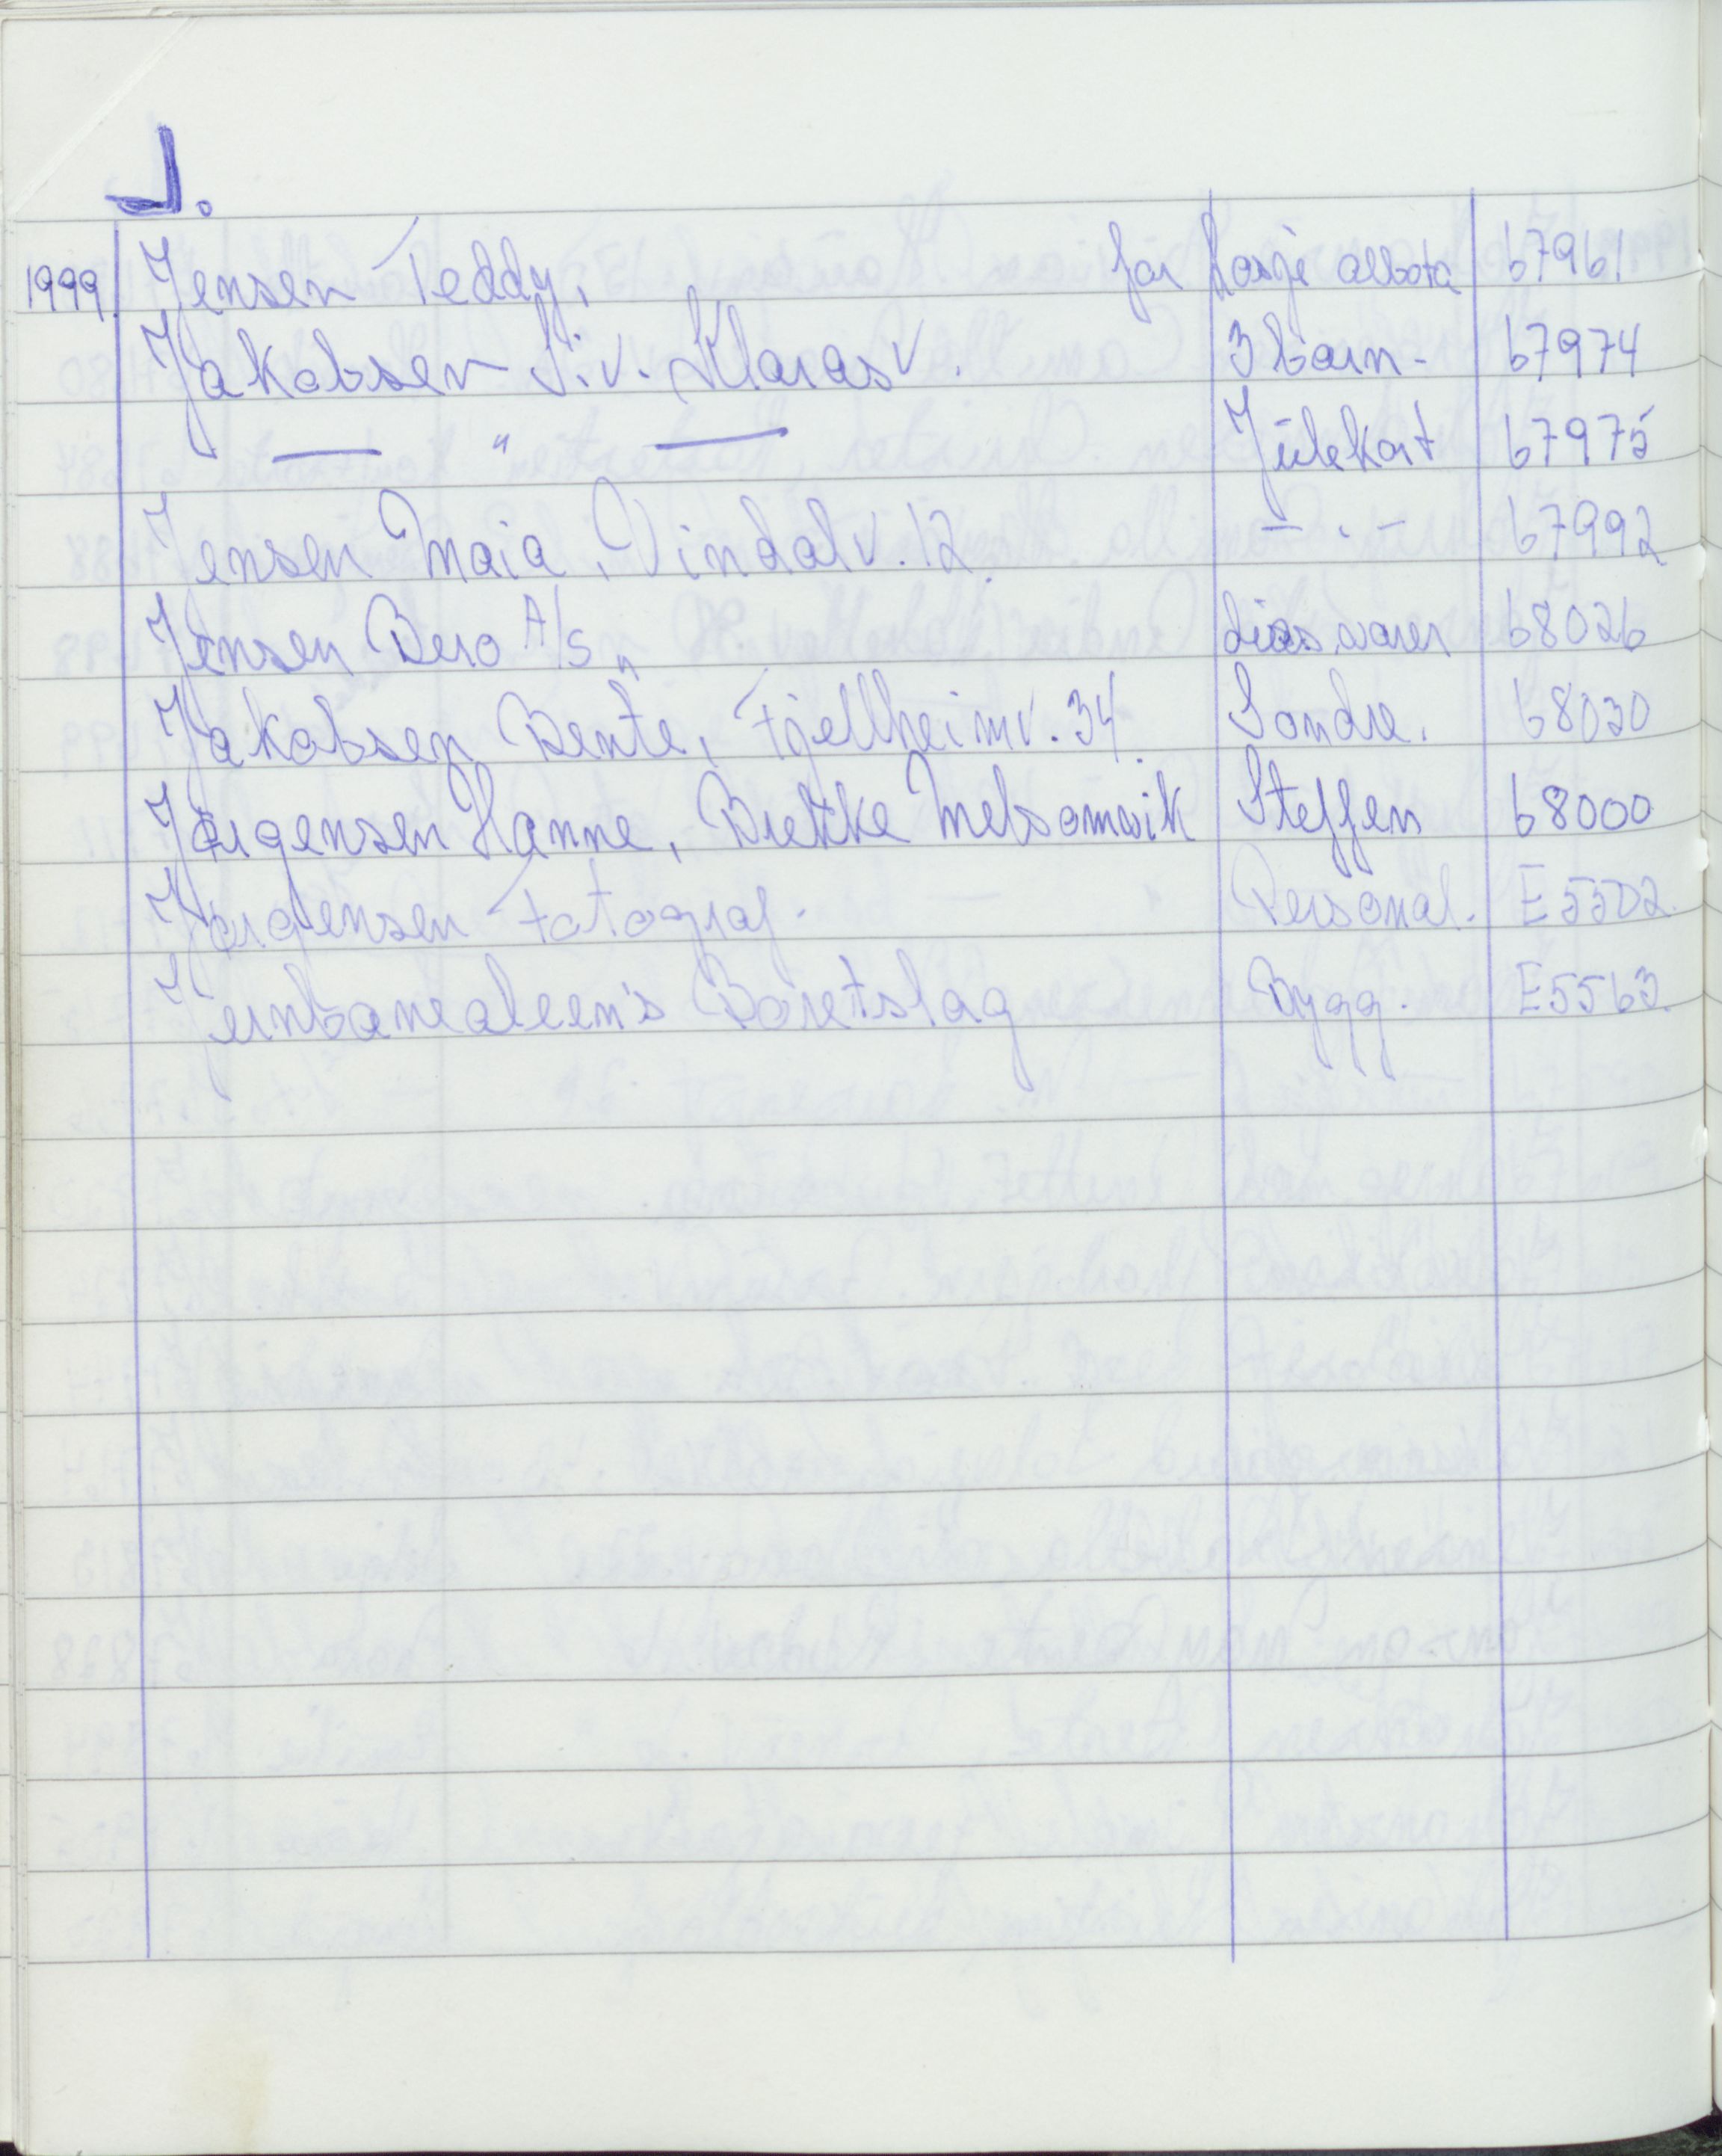 J.
1999. Jensen Teddy, for Kosje albota 67961
Jakobsen Siv. Klarasv. 3 barn- 67974
— " — Julekort 67975
Jensen Maia, Vindalv. 12. — . — 67992
Jensen Bero A/S, varer 68026
Jakobsen Bente, Fjellheimv. 34. Sondre. 68030
Jørgensen Hanne, Brekke Melsomvik Steffen 68000
Jørgensen Fotograf. Personal. E5502.
Jernbanealeen's Boretslag Bygg. E5563.